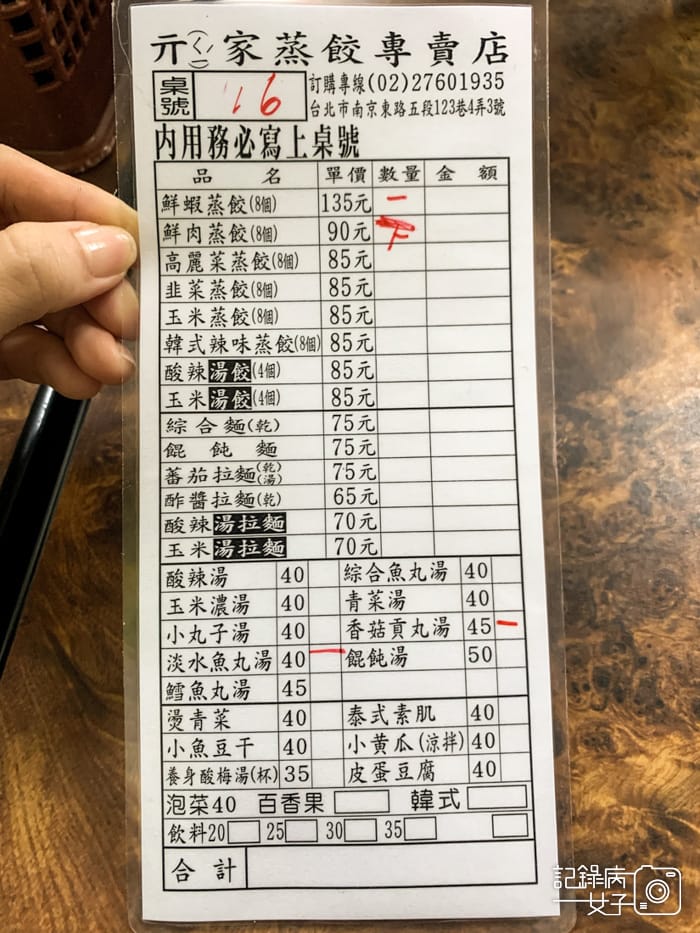 亓(ㄑㄧˊ)家蒸餃專賣店
桌號 16 訂購專線(02)27601935
台北市南京東路五段123巷4弄3號
內用務必寫上桌號
品名 單價 數量 金額
鮮蝦蒸餃(8個) 135元 一
鮮肉蒸餃(8個) 90元 下
高麗菜蒸餃(8個) 85元
韭菜蒸餃(8個) 85元
玉米蒸餃(8個) 85元
韓式辣味蒸餃(8個) 85元
酸辣湯餃(4個) 85元
玉米湯餃(4個) 85元
綜合麵(乾) 75元
餛飩麵 75元
蕃茄拉麵(乾)(湯) 75元
酢醬拉麵(乾) 65元
酸辣湯拉麵 70元
玉米湯拉麵 70元
酸辣湯 40 綜合魚丸湯 40
玉米濃湯 40 青菜湯 40
小丸子湯 40 香菇貢丸湯 45 一
淡水魚丸湯 40 一 餛飩湯 50
鱈魚丸湯 45
燙青菜 40 泰式素肌 40
小魚豆干 40 小黄瓜(涼拌) 40
養身酸梅湯(杯) 35 皮蛋豆腐 40
泡菜40 百香果 韓式
飲料20 25 30 35
合計
記錄病
女子